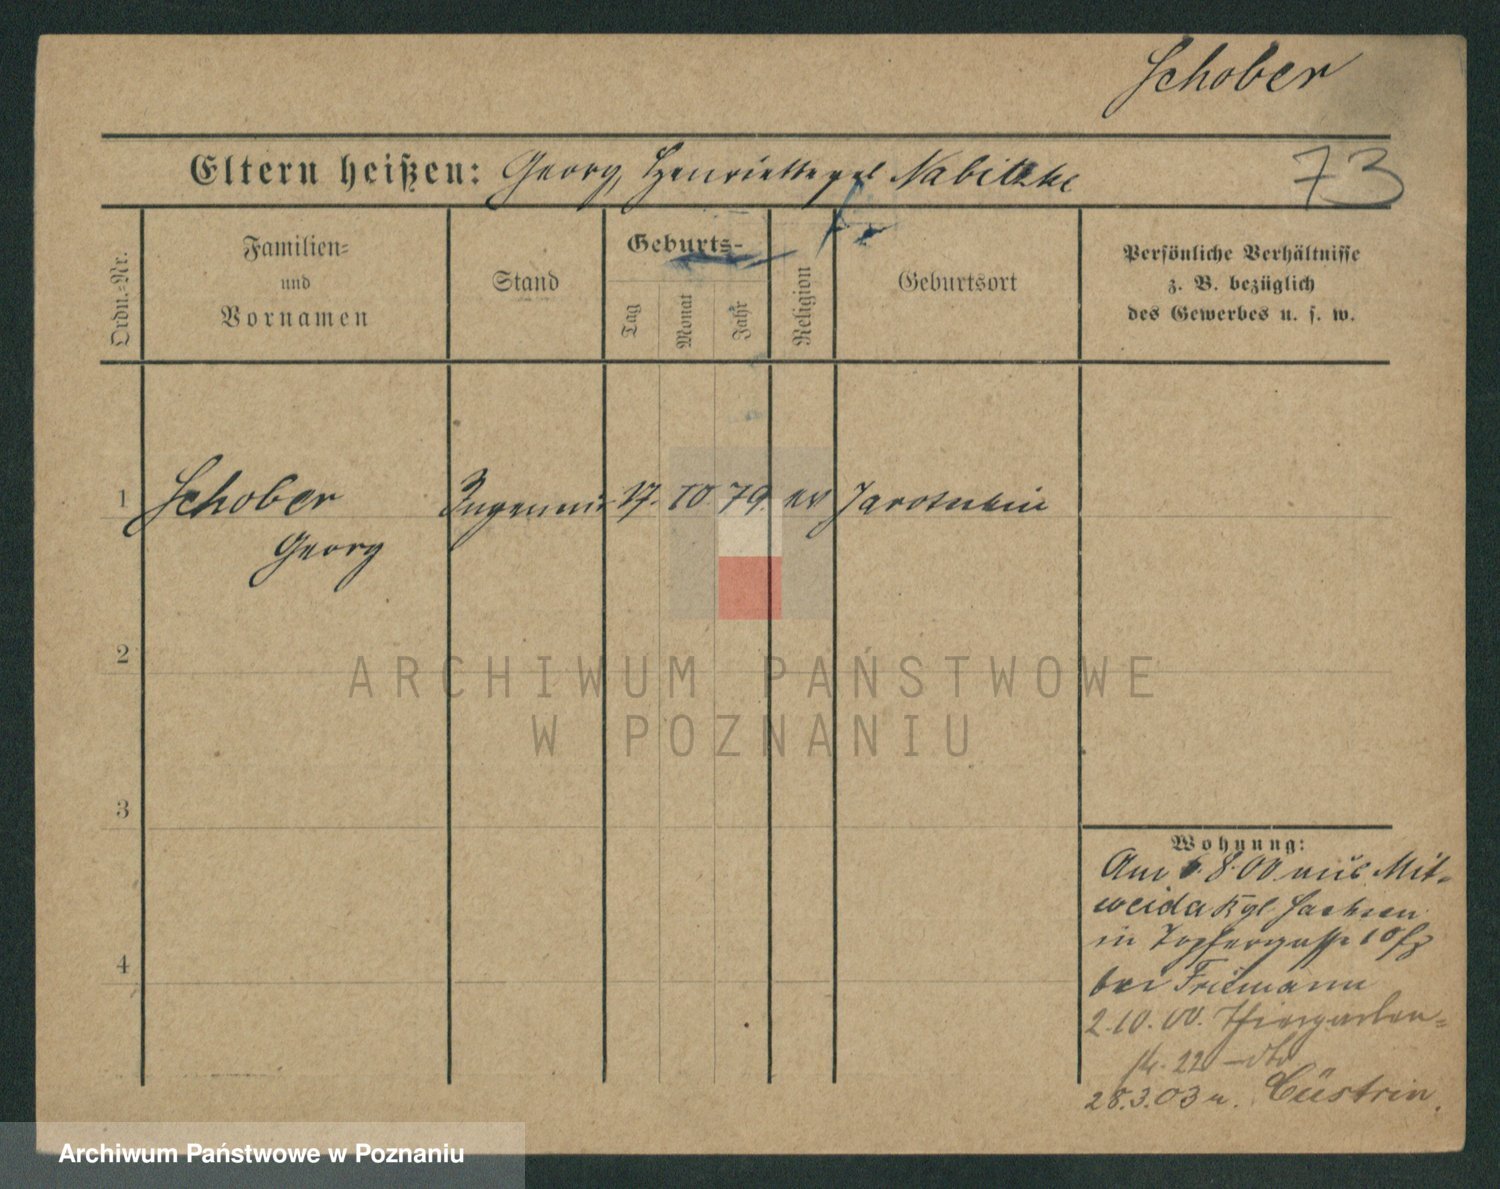 Schober
Eltern heißen: Georg, Henriette geb Nabitzke
73
Ordn.-Nr.
Familien-
und
Vornamen
Stand
Geburts-
Tag
Monat
Jahr
Religion
Geburtsort
Persönliche Verhältnisse
z. B. bezüglich
des Gewerbes u. s. w.
1 Schober Ingenieur 17. 10. 79. ev Jarotschin
Georg
2
ARCHIWUM PAŃSTWOWE
W POZNANIU
3
Wohnung:
Am 6.8.00 aus Mit-
weida Kgl. Sachsen
in Töpfergasse 10
4
bei
2.10.00. Thiergarten-
str. 22
28.3.03 n. Cüstrin.
Archiwum Państwowe w Poznaniu